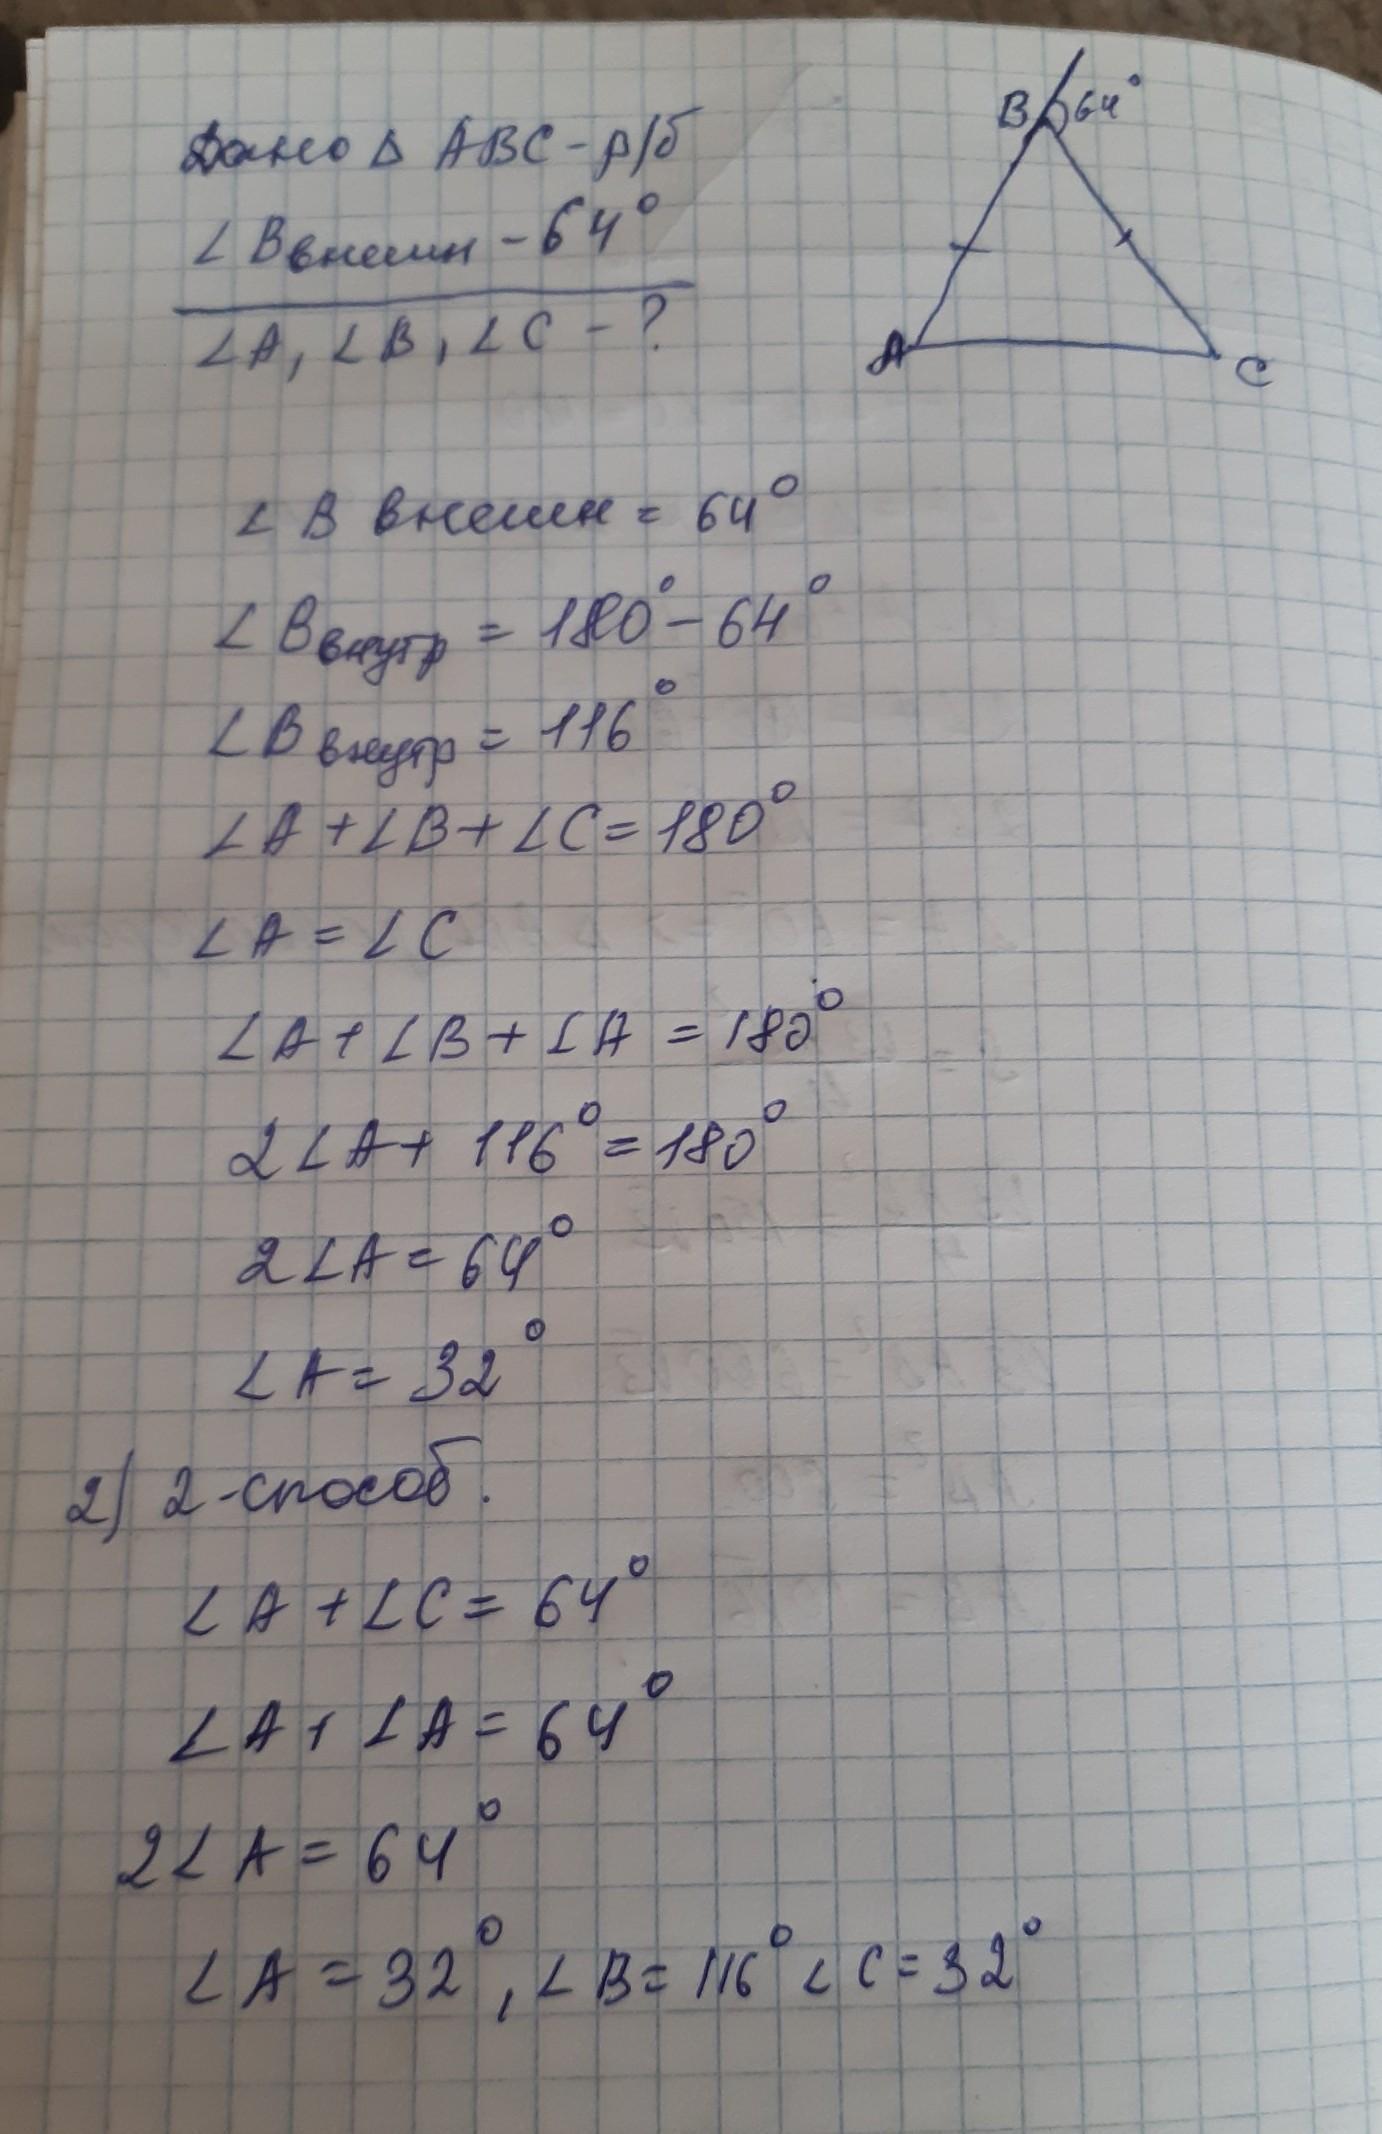 Дано △ ABC - р/б
∠Bвнешн - 64°
∠A, ∠B, ∠C - ?
B 64°
A
C
∠B внешн = 64°
∠Bвнутр = 180° - 64°
∠Bвнутр = 116°
∠A + ∠B + ∠C = 180°
∠A = ∠C
∠A + ∠B + ∠A = 180°
2∠A + 116° = 180°
2∠A = 64°
∠A = 32°
2) 2-способ.
∠A + ∠C = 64°
∠A + ∠A = 64°
2∠A = 64°
∠A = 32°, ∠B = 116° ∠C = 32°